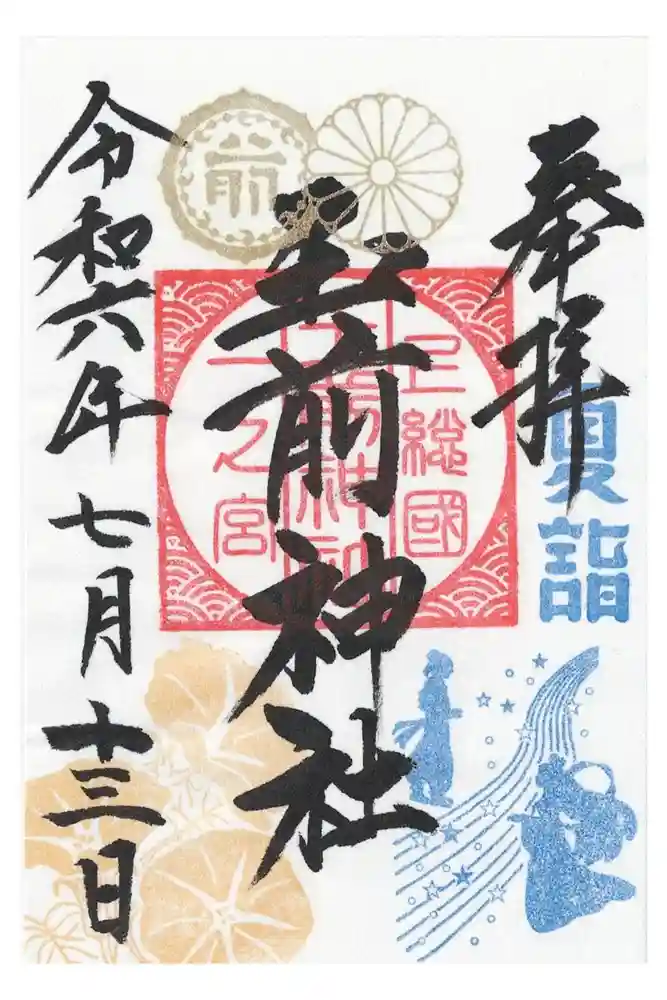 奉拝
夏詣
玉前神社
上総國
一之宮
前
令和六年七月十三日